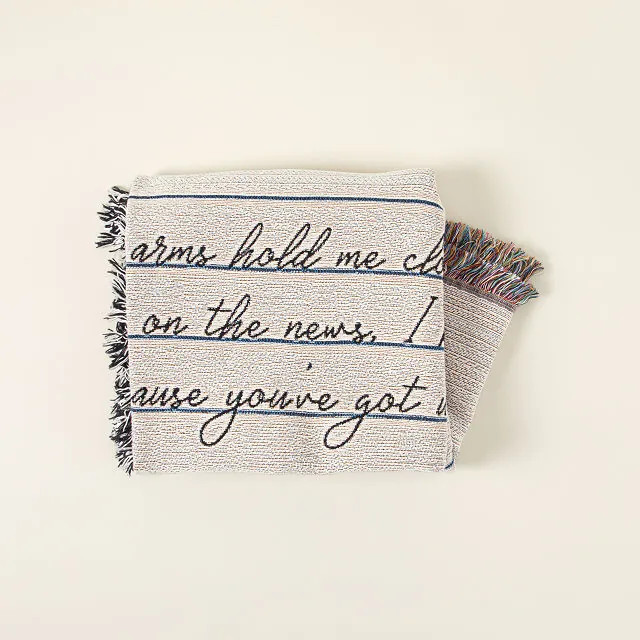 arms hold me cl
on the news, I
ause you've got